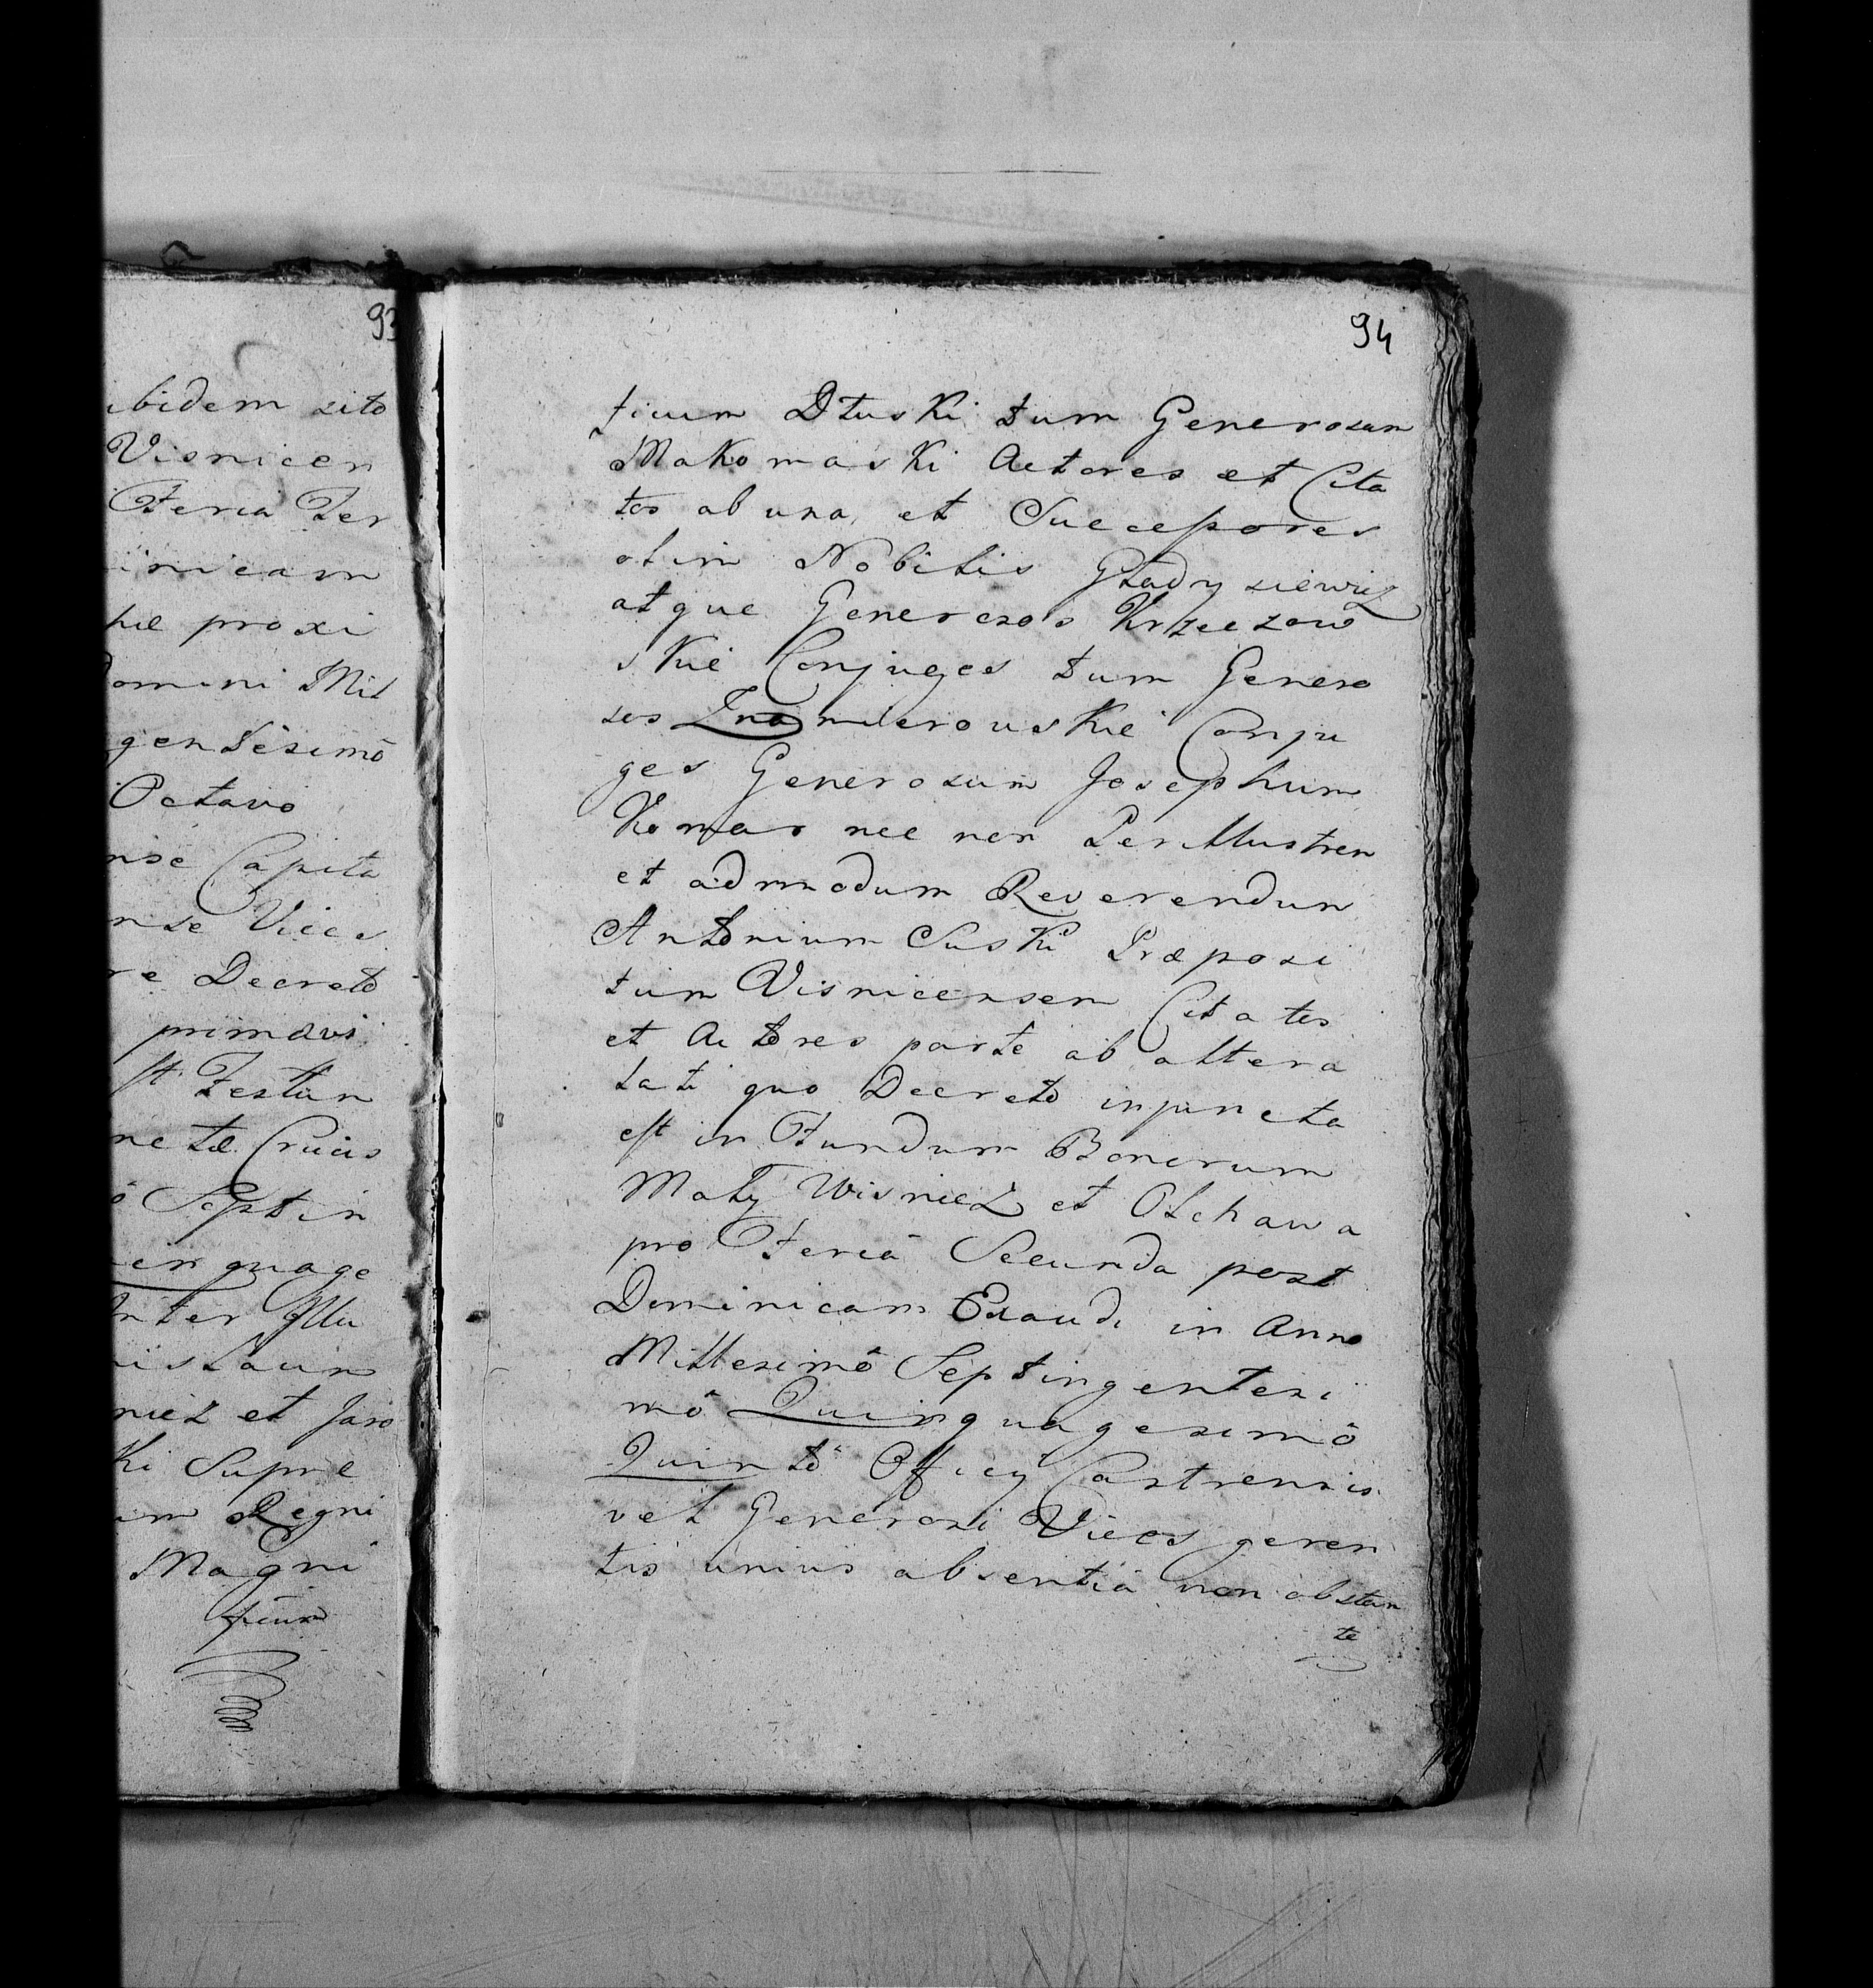 93
ibidem sito
Visnicen
Feria Ter
inicam
hæ proxi
Domini Mil
gentesimô
Octavo
nse Capita
nse Vices
re Decreto
primævi
st Festum
nctæ Crucis
ô Septin
inquage
Inter Illu
islaum
nicz et Jaro
ki Supre
um Regni
Magni
ficum
94
ficum Dłuski tum Generosum
Makomaski Actores et Cita
tos ab una, et Successores
olim Nobilis Gładysiewicz
atque Generosos Krzeczow
skie Conjuges tum Genero
sos Żmierowskie Conju
ges Generosum Josephum
Komar nec non Perillustren
et admodum Reverendum
Antonium Suski Præposi
tum Visnicensem Citatos
et Actores parte ab altera
lati quo Decreto injuncta
est in Fundum Bonorum
Mały Wisnicz et Olchawa
pro Feriâ Secunda post
Dominicam Exaudi in Anno
Millesimô Septingentesi
mô Quinquagesimô
Quintô Officy Castrensis
vel Generosi Vices geren
tis unius absentiâ non obstan
te